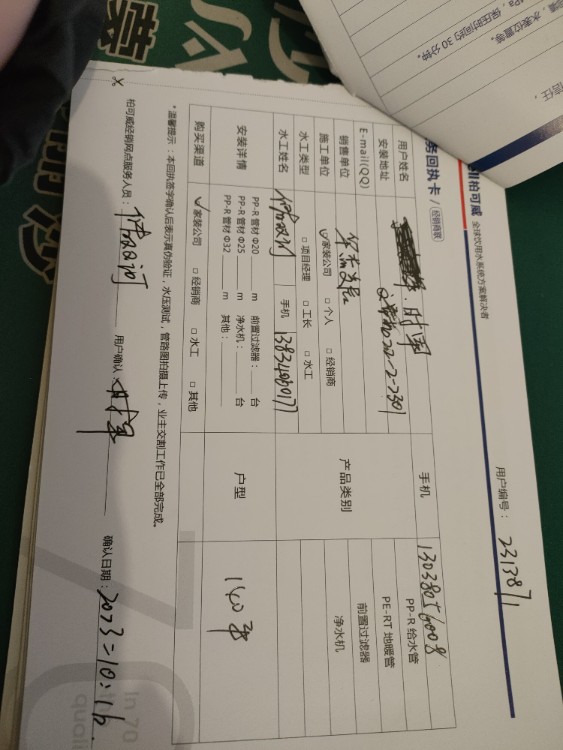 柏可威 全球饮用水系统方案解决者
用户编号: 2313871
务回执卡 / 经销商联
用户姓名 时军 手机 13038056008
安装地址 22-2-2301
E-mail(QQ)
产品类别
PP-R 给水管
PE-RT 地暖管
前置过滤器
净水机
销售单位
施工单位 ☑家装公司 □个人 □经销商
水工类型 □项目经理 □工长 □水工
水工姓名 手机 13834080177
安装详情
PP-R 管材 Φ20 m 前置过滤器: 台
PP-R 管材 Φ25 m 净水机: 台
PP-R 管材 Φ32 m 其他:
户型 140平
购买渠道 ☑家装公司 □经销商 □水工 □其他
*温馨提示:本回执签字确认后表示真伪验证,水压测试,管路图拍摄上传,业主交割工作已全部完成。
柏可威经销网点服务人员: 用户确认: 时军 确认日期: 2023=10:16
水表位置等。
保压时间约 30 分钟。
In 70
quali